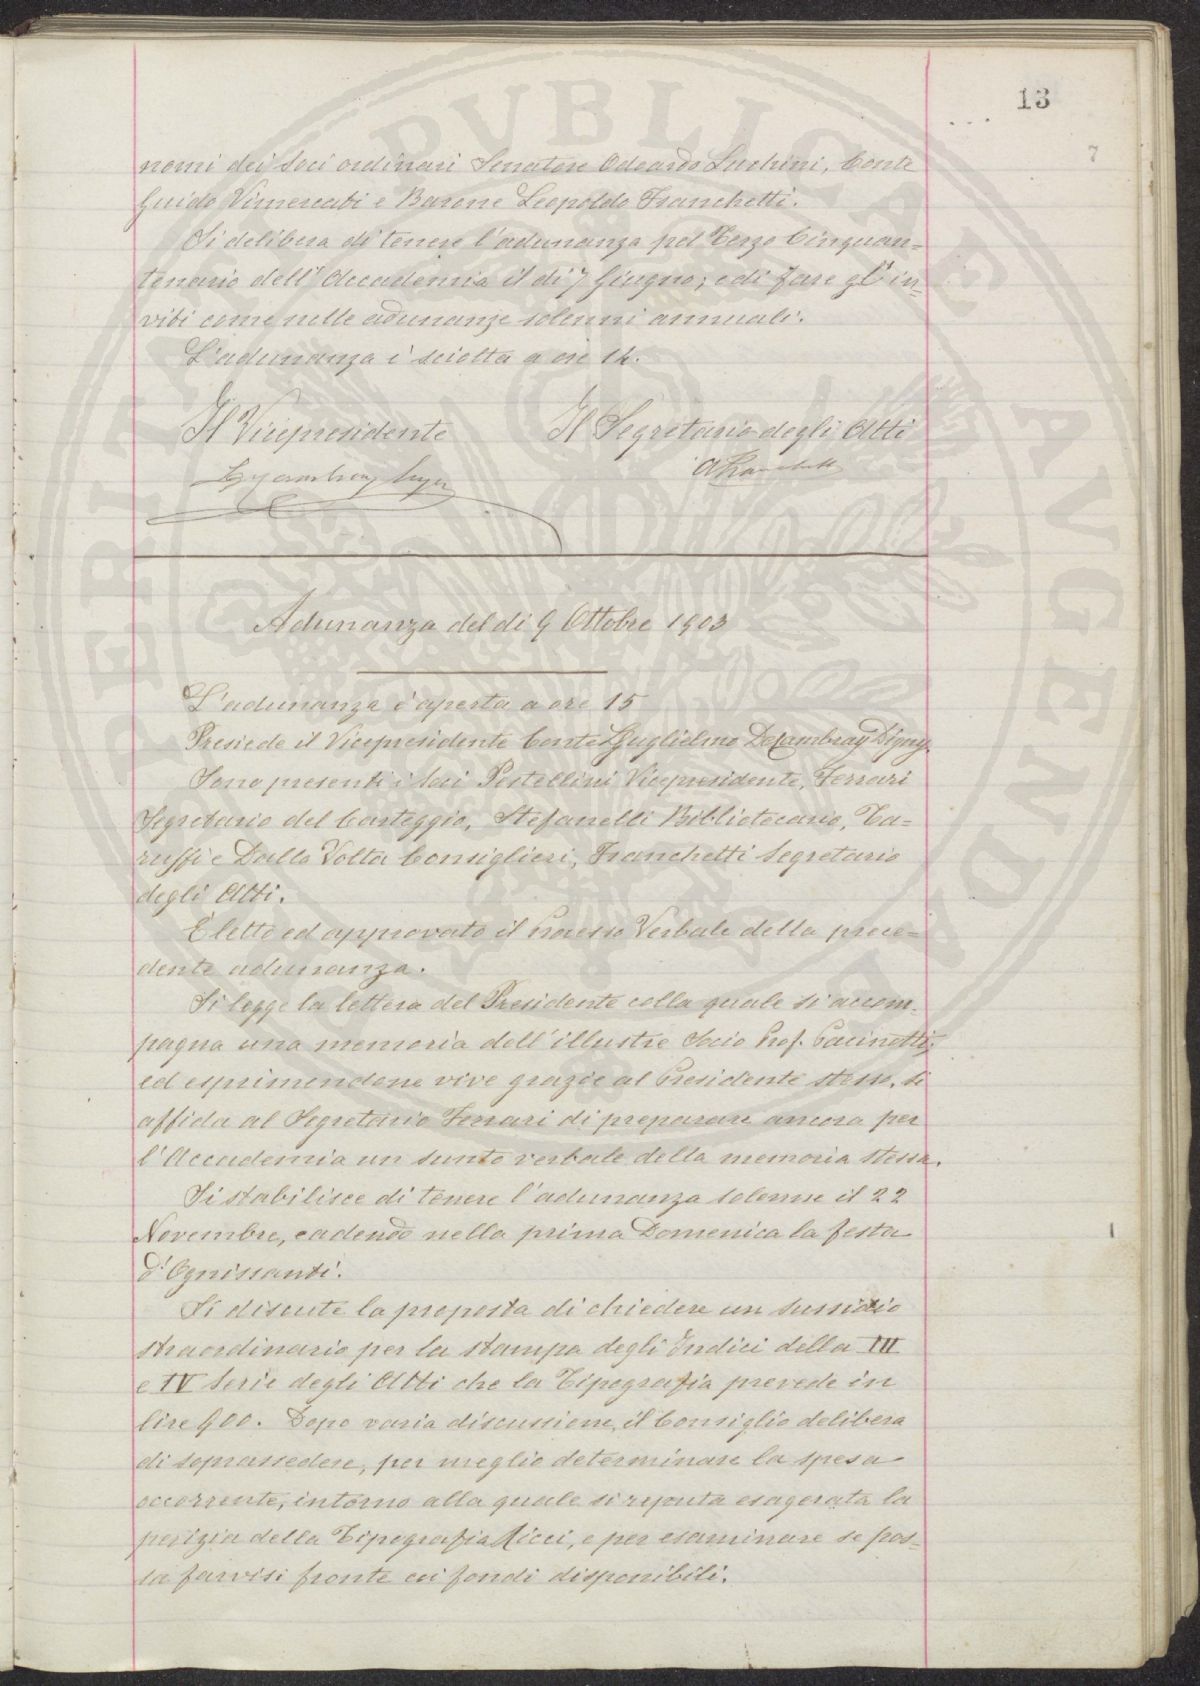 13
7
nomi dei Soci ordinari Senatore Odoardo Luchini, Conte
Guido Vimercati e Barone Leopoldo Franchetti.
Si delibera di tenere l'adunanza pel Terzo Cinquan=
tenario dell'Accademia il dì 7 Giugno; e di fare gl'in=
viti come nelle adunanze solenni annuali.
L'adunanza è sciolta a ore 14.
Il Vicepresidente Il Segretario degli Atti
AFranchetti
Adunanza del dì 9 Ottobre 1903
L'adunanza è aperta a ore 15
Presiede il Vicepresidente Conte Guglielmo DeCambray Digny.
Sono presenti i Soci Pestellini Vicepresidente, Ferrari
Segretario del Carteggio, Stefanelli Bibliotecario, Ta=
ruffi e Dalla Volta Consiglieri, Franchetti Segretario
degli Atti.
È letto ed approvato il Processo Verbale della prece=
dente adunanza.
Si legge la lettera del Presidente colla quale si accom=
pagna una memoria dell'illustre Socio Prof. Pacinotti;
ed esprimendone vive grazie al Presidente stesso, si
affida al Segretario Ferrari di preparare ancora per
l'Accademia un sunto verbale della memoria stessa.
Si stabilisce di tenere l'adunanza solenne il 22
Novembre, cadendo nella prima Domenica la festa
d'Ognissanti.
Si discute la proposta di chiedere un sussidio
straordinario per la stampa degli Indici della III
e IV Serie degli Atti che la Tipografia prevede in
lire 900. Dopo varia discussione, il Consiglio delibera
di soprassedere, per meglio determinare la spesa
occorrente, intorno alla quale si reputa esagerata la
perizia della Tipografia Ricci, e per esaminare se pos=
sa farvisi fronte coi fondi disponibili.
PROSPERITATI PVBLICAE AVGENDAE